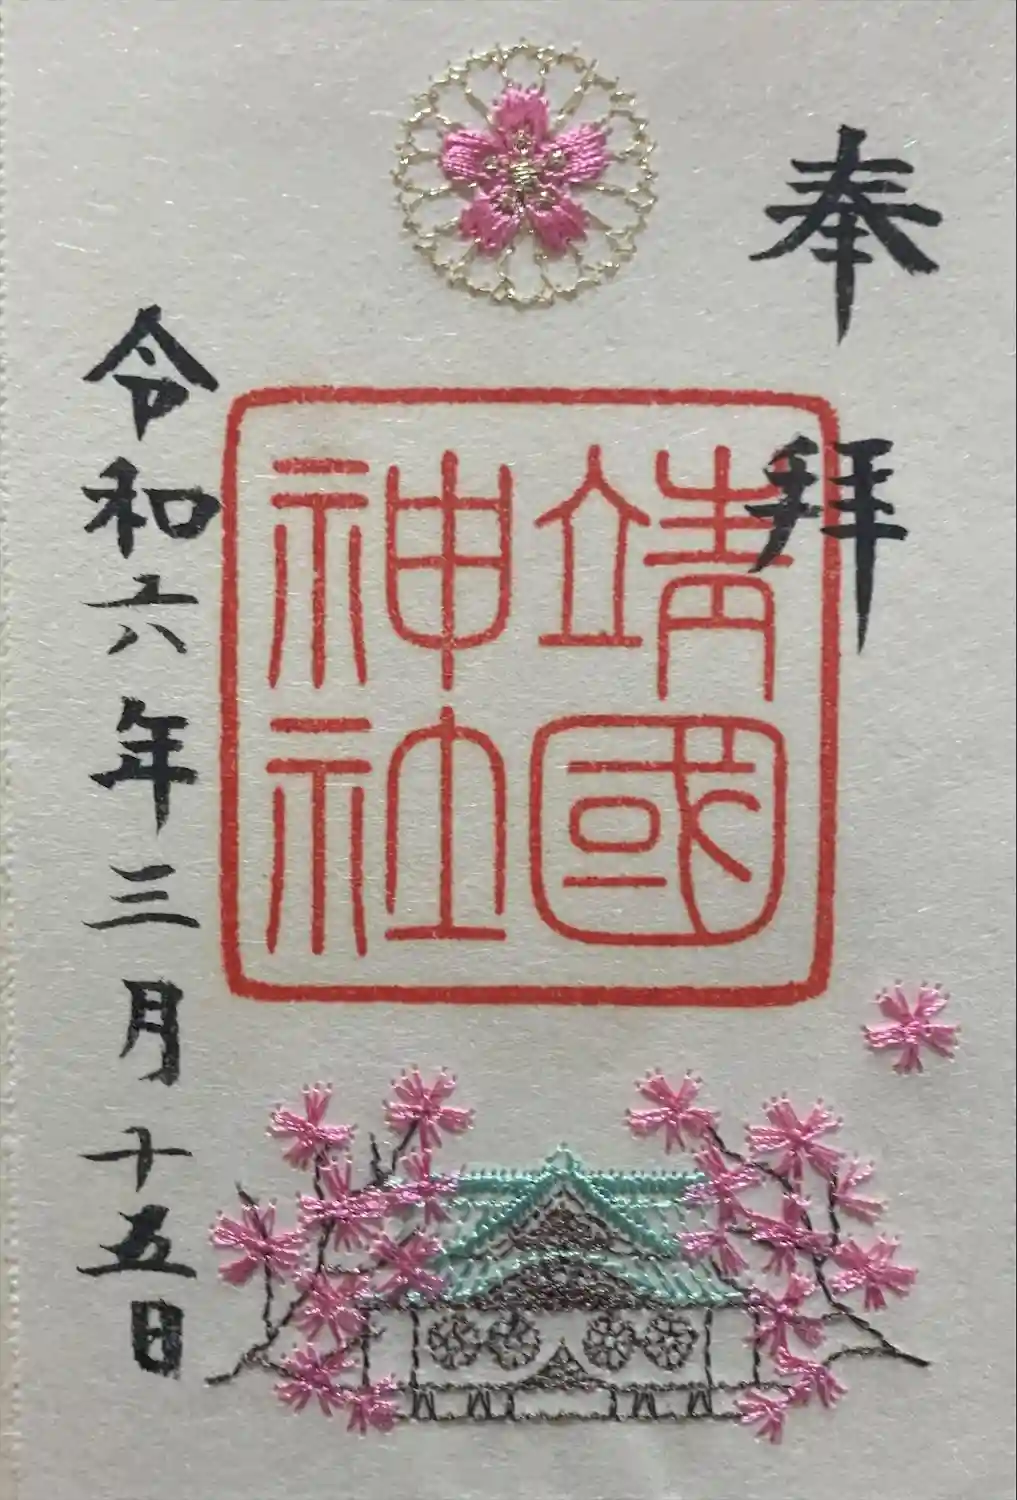 奉拝
靖國
神社
令和六年三月十五日